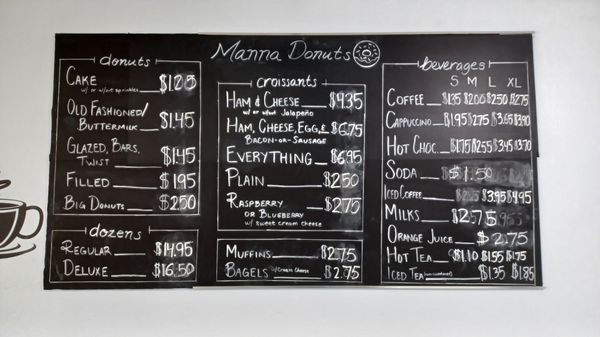 Manna Donuts
donuts
CAKE $1.25
w/ or w/out sprinkles
OLD FASHIONED/
BUTTERMILK $1.45
GLAZED, BARS,
TWIST $1.45
FILLED $1.95
BIG DONUTS $2.50
dozens
REGULAR $14.95
DELUXE $16.50
croissants
HAM & CHEESE $4.35
w/ or w/out Jalapeño
HAM, CHEESE, EGG, & $6.75
BACON-OR-SAUSAGE
EVERYTHING $6.95
PLAIN $2.50
RASPBERRY $2.75
OR BLUEBERRY
w/ sweet cream cheese
MUFFINS $2.75
BAGELS w/ Cream Cheese $2.75
beverages
S M L XL
COFFEE $1.35 $2.00 $2.50 $2.75
CAPPUCCINO $1.95 $2.75 $3.65 $3.90
HOT CHOC. $1.75 $2.55 $3.45 $3.70
SODA $1.50
ICED COFFEE $3.95 $4.95
MILKS $2.75
ORANGE JUICE $2.75
HOT TEA $1.10 $1.55 $1.75
ICED TEA $1.35 $1.85